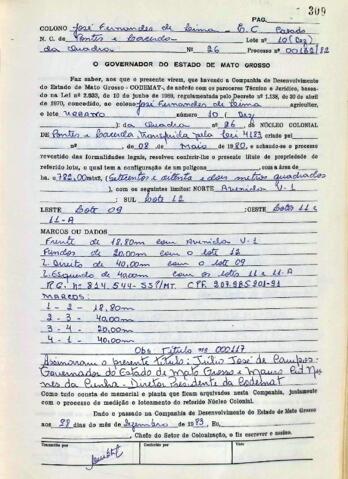 PAG. 309
COLONO José Fernandes de Lima - E.C. Casado
N. C. de Pontes e Lacerda Lote N.º 10 (Dez)
da Quadra N.º 26 Processo n.º 00182/82
O GOVERNADOR DO ESTADO DE MATO GROSSO
Faz saber, aos que o presente virem, que havendo a Companhia de Desenvolvimento
do Estado de Mato Grosso - CODEMAT-, de acôrdo com os pareceres Técnico e Jurídico, basea-
do na Lei n.º 2.933, de 10 de junho de 1969, regulamentada pelo Decreto n.º 1.138, de 20 de abril
de 1970, concedido, ao colono José Fernandes de Lima agricultor,
o lote URBANO 10 (Dez)
da Quadra n.º 26, do NÚCLEO COLONIAL
DE Pontes e Lacerda, Transferida pela Lei 4183 criado pel
n.º de 08 de Maio de 1980, e achando-se o processo
revestido das formalidades legais, resolveu conferir-lhe o presente título de propriedade de
referido lote, o qual tem a configuração de um polígono com a área de
ha. 782,00mts2, (Setecentos e oitenta e dois metros quadrados
), com os seguintes limites: NORTE Avenida V-1
; SUL Lote 12
LESTE Lote 09 ; OESTE Lotes 11 e
11-A
MARCOS OU DADOS
Frente de 18,80m com Avenida V-1
Fundos de 20,00m com o lote 12
L. Direito de 40,00m com o lote 09
L. Esquerdo de 40,00m com os lotes 11 e 11-A
R.G. Nº 814.544-SSP/MT. CPF. 207.985.201-91
MARCOS:
1 - 2 - 18,80m
2 - 3 - 40,00m
3 - 4 - 20,00m
4 - 1 - 40,00m
Obs Título nº 000117
Assinaram o presente título: Júlio José de Campos -
Governador do Estado de Mato Grosso e Mauro Cid Nu-
nes da Cunha - Diretor Presidente da Codemat
Como tudo consta do memorial e planta que ficam arquivados nesta Companhia, juntamente
com o processo de medição e loteamento do referido Núcleo Colonial.
Dado e passado na Companhia de Desenvolvimento do Estado de Mato Grosso
aos 28 dias do mês de Dezembro de 1983, Eu,
, Chefe do Setor de Colonização, o fiz escrever e assino.
Transcrito por
Conferido por